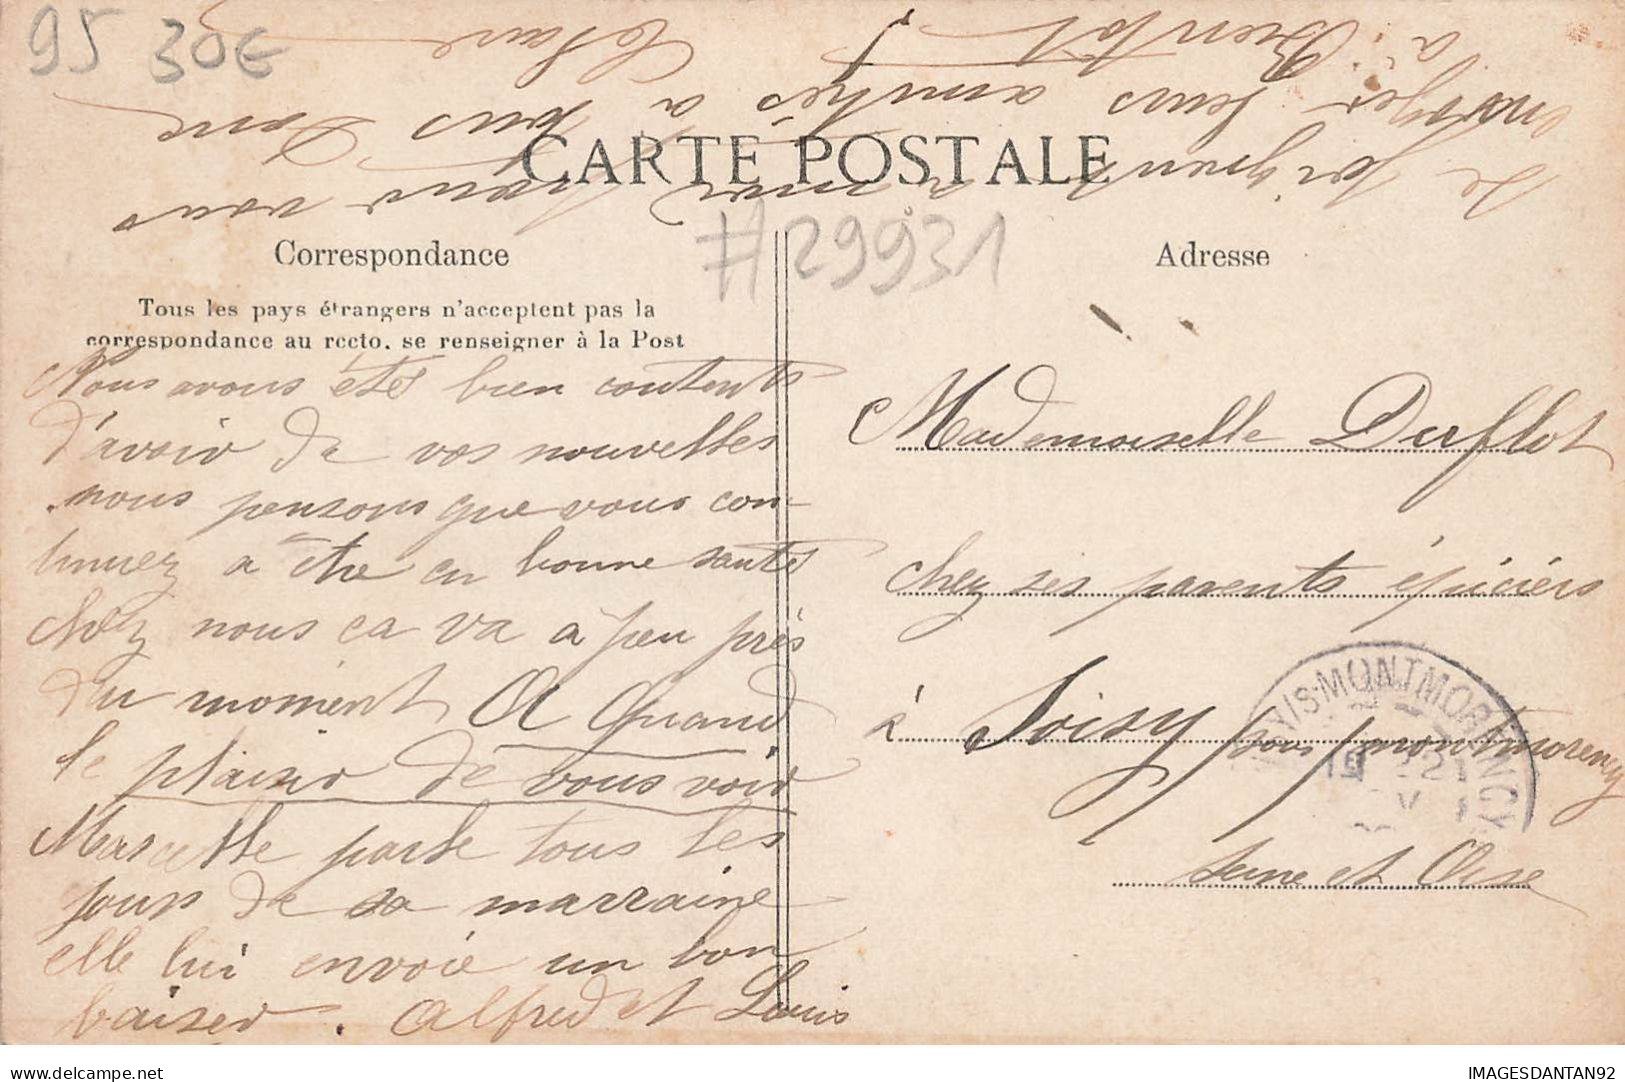 95 30€
CARTE POSTALE
#29931
Correspondance
Adresse
Tous les pays étrangers n'acceptent pas la
correspondance au recto, se renseigner à la Post
Nous avons étés bien contents
d'avoir de vos nouvelles
nous pensons que vous con-
tinuez a être en bonne santé
chez nous ca va a peu près
du moment A Quand
le plaisir de vous voir
Marcelle parle tous les
jours de sa marraine
elle lui envoie un bon
baiser. Alfred et Louis
se joignent a moi pour vous
envoyer leurs amitiés a tous
a Bientot
Mademoiselle Duflot
chez ses parents épiciérs
à Soisy sous Montmorency
Seine et Oise
SOISY-S-MONTMORENCY
IMAGESDANTAN92
delcampe.net